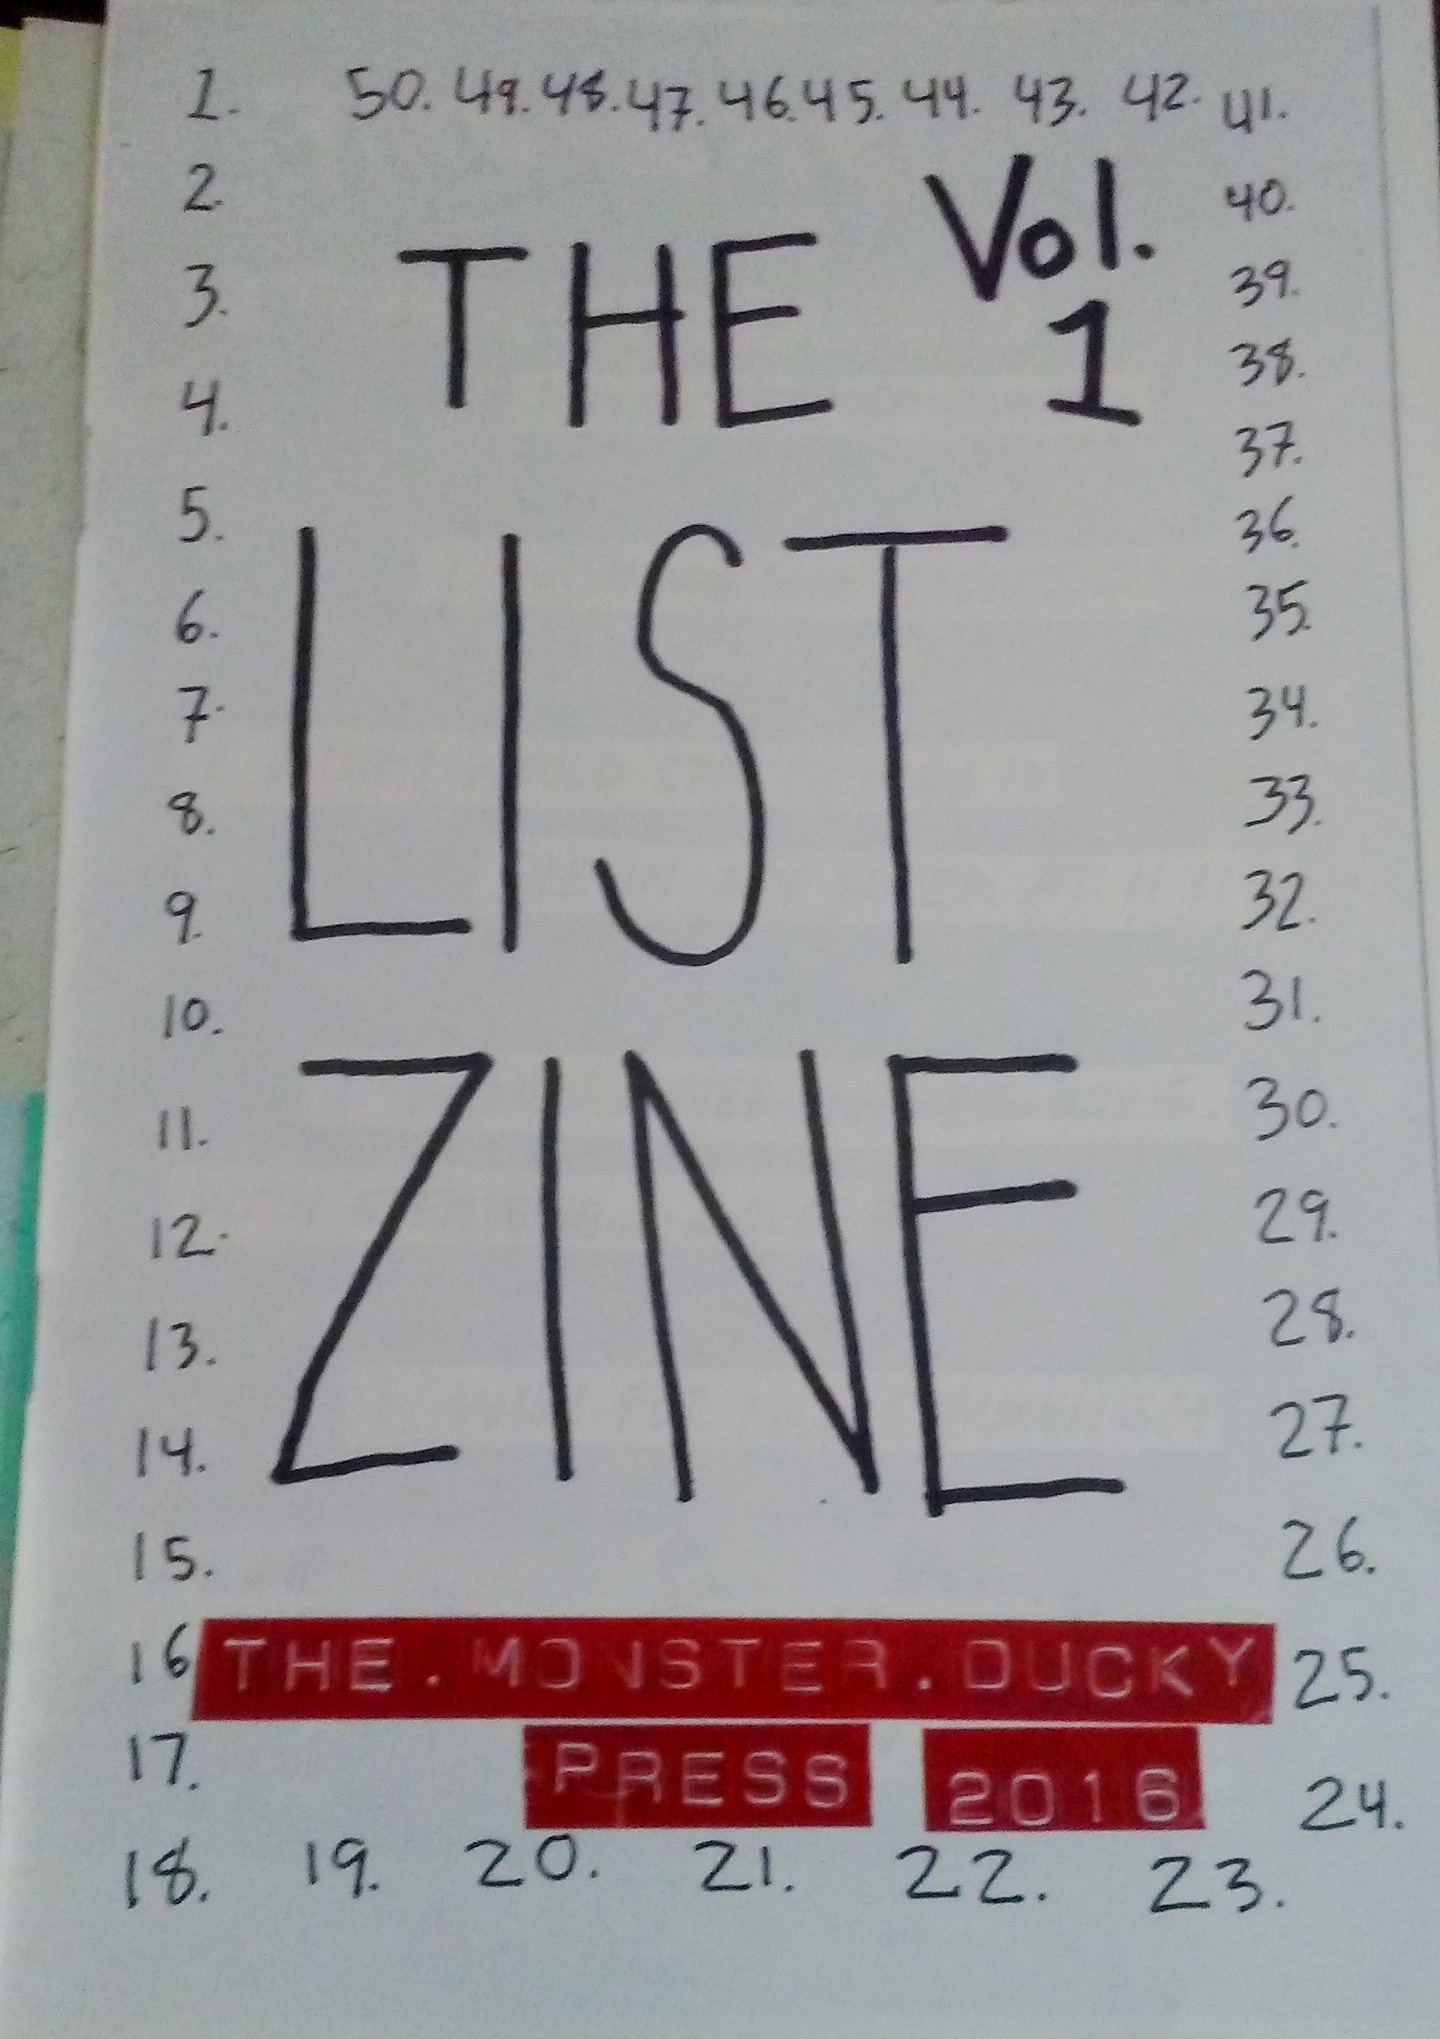 1. 50. 49. 48. 47. 46. 45. 44. 43. 42. 41.
2. 40.
Vol.
THE
3. 39.
1
4. 38.
37.
5. 36.
LIST
6. 35.
7. 34.
8. 33.
9. 32.
10. 31.
ZINE
11. 30.
12. 29.
13. 28.
14. 27.
15. 26.
16 THE.MONSTER.DUCKY 25.
17. PRESS 2016 24.
18. 19. 20. 21. 22. 23.